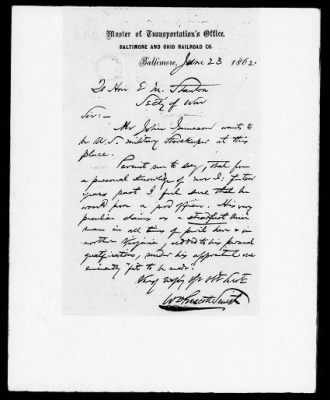 Master of Transportation's Office,
BALTIMORE AND OHIO RAILROAD CO.
Baltimore, June 23 1862
To Hon E. M. Stanton
Secty of War
Sir:—
Mr John Jameson wants to
be U.S. Military Storekeeper at this
place.
Permit me to say, that from
a personal knowledge of him of
years past I feel sure that he
would prove a good officer. His very
peculiar claims as a steadfast Union
man in all times of peril here & in
northern Virginia, added to his personal
qualifications, render his appointment one
eminently "fit to be made".
Very
W Prescott Smith